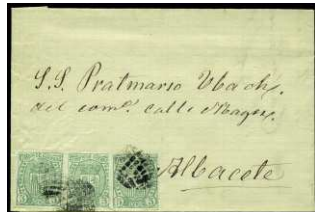 S.S. Pratmarso Ubach.
del comº. calle Mayor.
Albacete